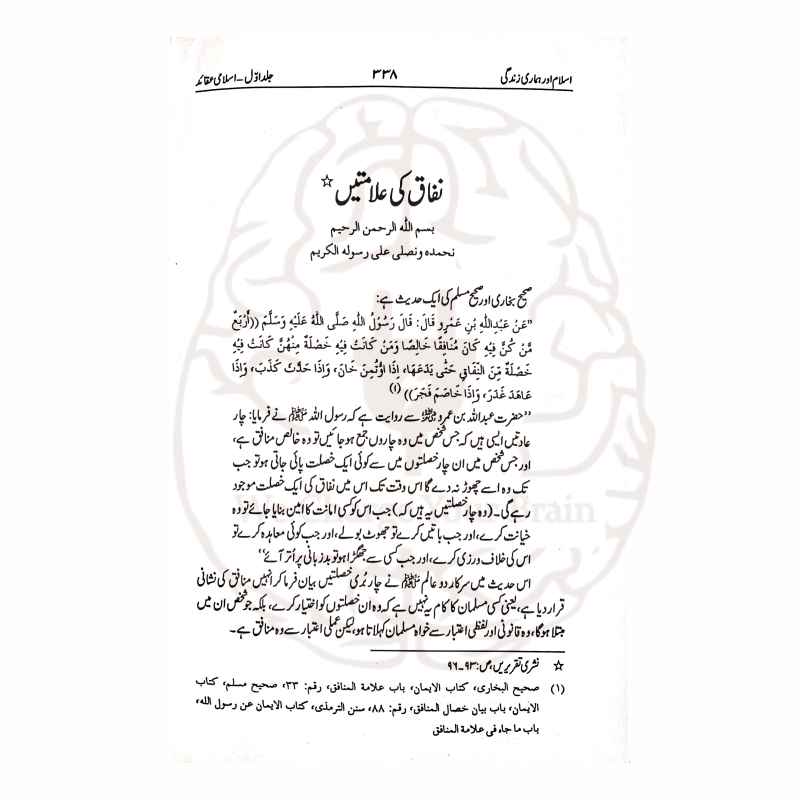 اسلام اور ہماری زندگی ۳۳۸ جلد اوّل - اسلامی عقائد
نفاق کی علامتیں ☆
بسم الله الرحمن الرحيم
نحمده ونصلى على رسوله الكريم
صحیح بخاری اور صحیح مسلم کی ایک حدیث ہے:
"عَنْ عَبْدِاللّٰهِ بْنِ عَمْرٍو قَالَ: قَالَ رَسُوْلُ اللّٰهِ صَلَّى اللّٰهُ عَلَيْهِ وَسَلَّمَ ((أَرْبَعٌ
مَّنْ كُنَّ فِيْهِ كَانَ مُنَافِقًا خَالِصًا وَمَنْ كَانَتْ فِيْهِ خَصْلَةٌ مِنْهُنَّ كَانَتْ فِيْهِ
خَصْلَةٌ مِّنَ النِّفَاقِ حَتّٰى يَدَعَهَا، إِذَا اؤْتُمِنَ خَانَ، وَإِذَا حَدَّثَ كَذَبَ، وَإِذَا
عَاهَدَ غَدَرَ، وَإِذَا خَاصَمَ فَجَرَ)) (۱)
''حضرت عبداللہ بن عمرو رضی اللہ عنہ سے روایت ہے کہ رسول اللہ ﷺ نے فرمایا: چار
عادتیں ایسی ہیں کہ جس شخص میں وہ چاروں جمع ہو جائیں تو وہ خالص منافق ہے،
اور جس شخص میں ان چار خصلتوں میں سے کوئی ایک خصلت پائی جاتی ہو تو جب
تک وہ اسے چھوڑ نہ دے گا اس وقت تک اس میں نفاق کی ایک خصلت موجود
رہے گی۔ (وہ چار خصلتیں یہ ہیں کہ) جب اس کو کسی امانت کا امین بنایا جائے تو وہ
خیانت کرے، اور جب باتیں کرے تو جھوٹ بولے، اور جب کوئی معاہدہ کرے تو
اس کی خلاف ورزی کرے، اور جب کسی سے جھگڑا ہو تو بدزبانی پر اُتر آئے''
اس حدیث میں سرکار دو عالم ﷺ نے چار بُری خصلتیں بیان فرما کر انہیں منافق کی نشانی
قرار دیا ہے، یعنی کسی مسلمان کا کام یہ نہیں ہے کہ وہ ان خصلتوں کو اختیار کرے، بلکہ جو شخص ان میں
مبتلا ہوگا، وہ قانونی اور لفظی اعتبار سے خواہ مسلمان کہلاتا ہو، لیکن عملی اعتبار سے وہ منافق ہے۔
☆ نشری تقریریں، ص: ۹۳۔۹۶
(۱) صحيح البخارى، كتاب الايمان، باب علامة المنافق، رقم: ۳۳، صحيح مسلم، كتاب
الايمان، باب بيان خصال المنافق، رقم: ۸۸، سنن الترمذى، كتاب الايمان عن رسول الله،
باب ما جاء فى علامة المنافق